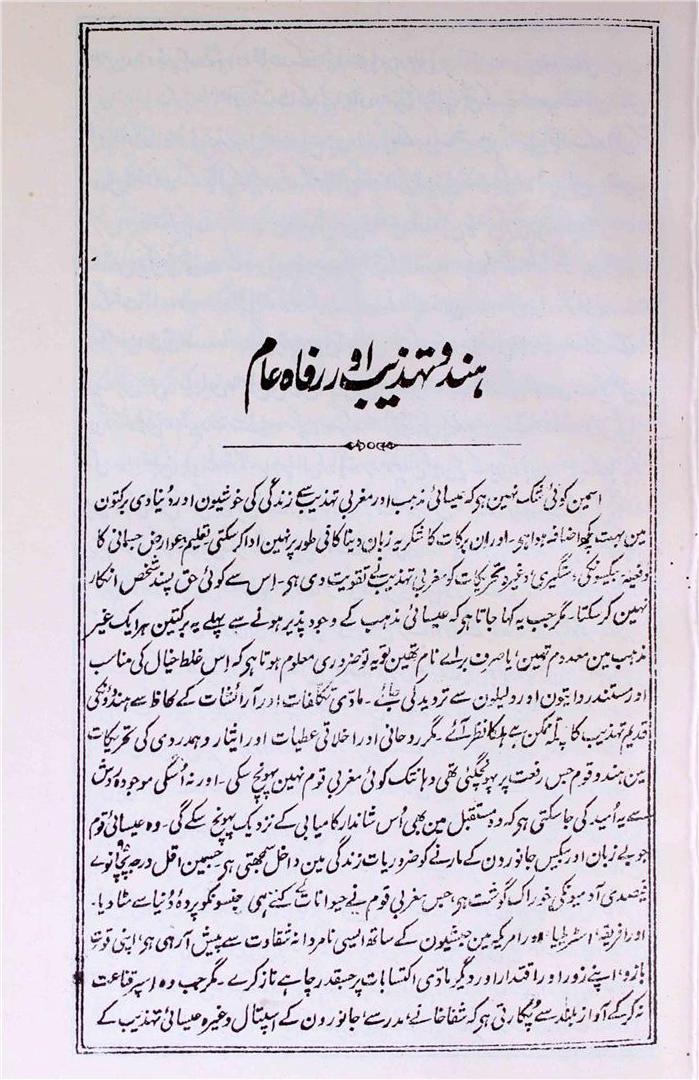 ہندو تہذیب اور رفاہ عام
اسمین کوئی شک نہین ہی کہ عیسائی مذہب اور مغربی تہذیب سے زندگی کی خوشیون اور دنیادی برکتون
مین بہت کچھ اضافہ ہوا ہی۔ اور ان برکات کا شکریہ زبان دینا کافی طور پر نہین ادا کر سکتی۔ تعلیم، عوارض جسمانی کا
دفعیہ، بیکسونکی دستگیری، وغیرہ تحریکات کو مغربی تہذیب نے تقویت دی ہی۔ اس سے کوئی حق پسند شخص انکار
نہین کر سکتا۔ مگر جب یہ کہا جاتا ہی کہ عیسائی مذہب کے وجود پذیر ہونے سے پہلے یہ برکتین ہر ایک غیر
مذہب مین معدوم تھین یا صرف براے نام تھین تو یہ تو ضروری معلوم ہوتا ہی کہ اس غلط خیال کی مناسب
اور مستند رداتیون اور دلیلون سے تردید کی جائے۔ مادّی تکلّفات اور آرائشات کے لحاظ سے ہندوؤنکی
قدیم تہذیب کا پلّہ ممکن ہے ہلکا نظر آئے۔ مگر روحانی اور اخلاقی عطیات اور ایثار و ہمدردی کی تحریکات
مین ہندو قوم جس رفعت پر پہونچگئی تھی وہانتک کوئی مغربی قوم نہین پہونچ سکی۔ اور نہ اُسکی موجودہ روش
سے یہ اُمید کی جا سکتی ہی کہ وہ مستقبل مین بھی اُس شاندار کامیابی کے نزدیک پہونچ سکے گی۔ وہ عیسائی قوم
جو بے زبان اور بیکس جانورون کے مارنے کو ضروریات زندگی مین داخل سمجھتی ہی جسمین اقل درجہ پچانوے
فیصدی آدمیونکی خوراک گوشت ہی، جس مغربی قوم نے حیوانات کے کتنے ہی جنسونکو پردۂ دُنیا سے مٹا دیا۔
اور افریقہ، اسٹریلیا اور امریکہ مین حبشیون کے ساتھ ایسی نامردانہ شقاوت سے پیش آ رہی ہی، اپنی قوت
بازو، اپنے زور اور اقتدار اور دیگر مادّی اکتسابات پر جسقدر چاہے ناز کرے۔ مگر جب وہ اسپر قناعت
نہ کر کے آواز بلند سے پُکارتی ہی کہ شفا خانے، مدرسے، جانورون کے اسپتال وغیرہ عیسائی تہذیب کے